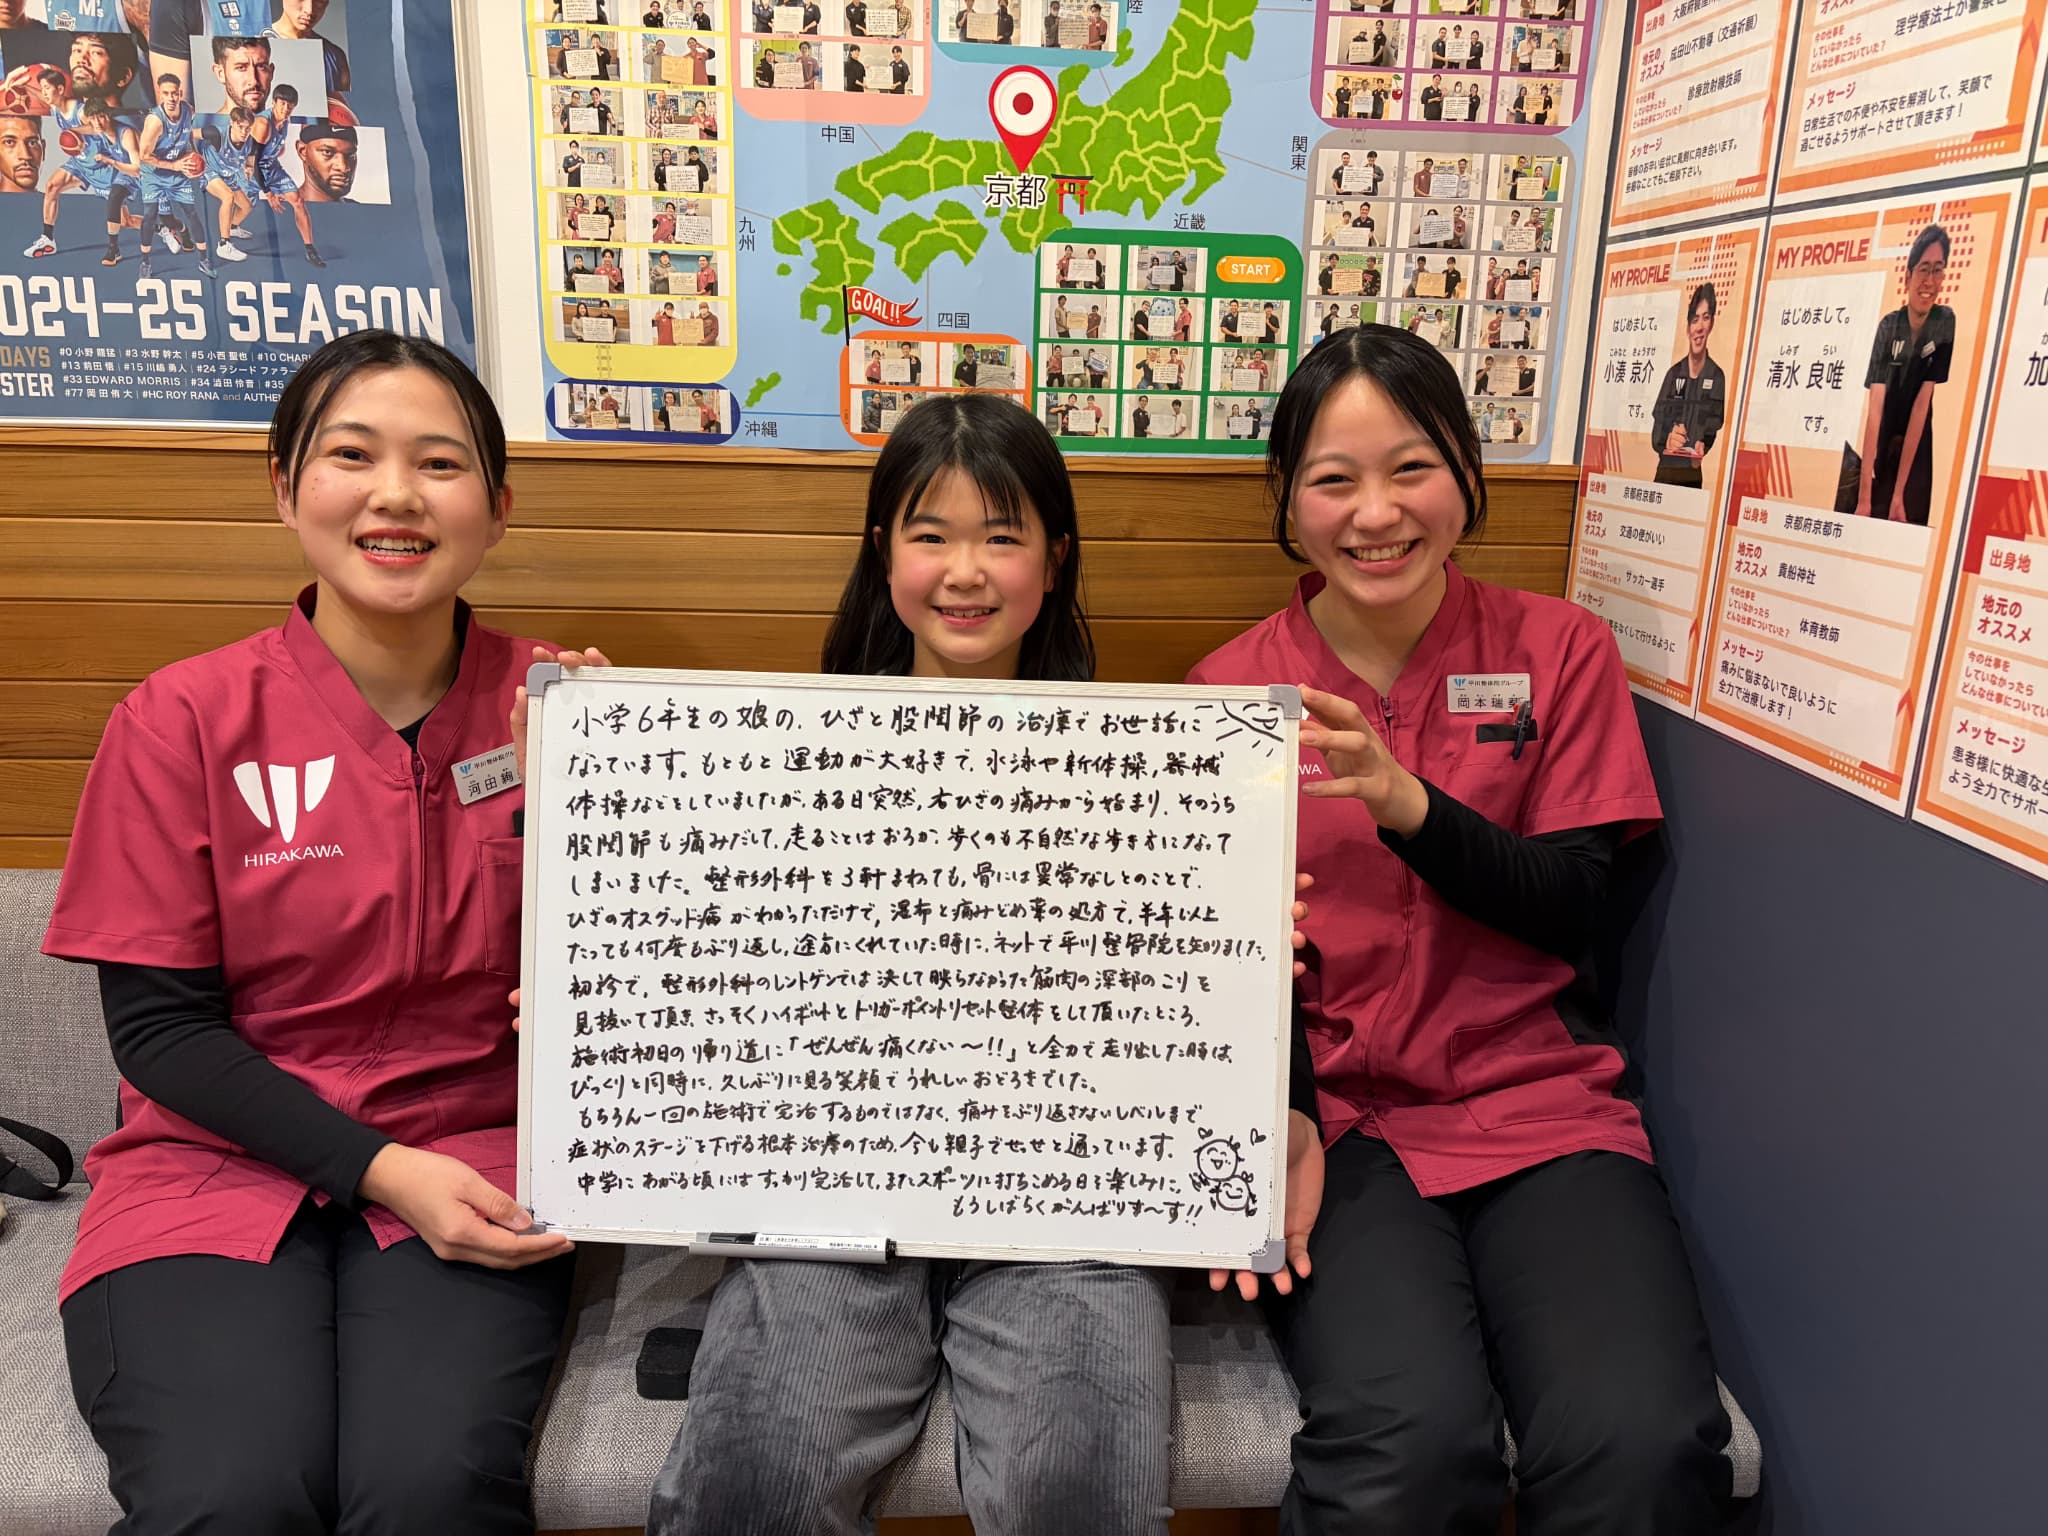 小学6年生の娘の、ひざと股関節の治療でお世話に
なっています。もともと運動が大好きで、水泳や新体操、器械
体操などをしていましたが、ある日突然、右ひざの痛みから始まり、そのうち
股関節も痛みだして、走ることはおろか、歩くのも不自然な歩き方になって
しまいました。整形外科を3軒まわっても、骨には異常なしとのことで、
ひざのオスグッド病がわかっただけで、湿布と痛みどめ薬の処方で、半年以上
たっても何度もぶり返し、途方にくれていた時に、ネットで平川整骨院を知りました。
初診で、整形外科のレントゲンでは決して映らなかった筋肉の深部のこりを
見抜いて頂き、さっそくハイボルトとトリガーポイントリセット整体をして頂いたところ、
施術初日の帰り道に「ぜんぜん痛くない〜!!」と全力で走り出した時は、
びっくりと同時に、久しぶりに見る笑顔でうれしいおどろきでした。
もちろん一回の施術で完治するものではなく、痛みをぶり返さないレベルまで
症状のステージを下げる根本治療のため、今も親子でせっせと通っています。
中学にあがる頃にはすっかり完治して、またスポーツに打ちこめる日を楽しみに、
もうしばらくがんばりま〜す!!
HIRAKAWA
平川整体院グループ
河田
平川整体院グループ
岡本瑞
024-25 SEASON
#0 小野 龍猛 | #3 水野 幹太 | #5 小西 聖也 | #10 CHARL
#13 前田 悟 | #15 川嶋 勇人 | #24 ラシード ファラー
#33 EDWARD MORRIS | #34 澁田 怜音 | #35
#77 岡田 侑大 | #HC ROY RANA and AUTHE
DAYS
STER
中国
九州
四国
沖縄
近畿
関東
京都
START
GOAL!!
MY PROFILE
はじめまして。
こみなと きょうすけ
小湊 京介
です。
出身地 京都府京都市
地元のオススメ 交通の便がいい
今の仕事をしていなかったらどんな仕事についていた? サッカー選手
メッセージ
をなくして行けるように
MY PROFILE
はじめまして。
しみず らい
清水 良唯
です。
出身地 京都府京都市
地元のオススメ 貴船神社
今の仕事をしていなかったらどんな仕事についていた? 体育教師
メッセージ
痛みに悩まないで良いように
全力で治療します!
出身地
地元のオススメ 成田山不動尊(交通祈願)
今の仕事をしていなかったらどんな仕事についていた? 診療放射線技師
メッセージ
皆様のお辛い症状に真剣に向き合います。
些細なことでもご相談下さい。
理学療法士か
メッセージ
日常生活での不便や不安を解消して、笑顔で
過ごせるようサポートさせて頂きます!
出身地
地元のオススメ
今の仕事を
していなかったら
どんな仕事についていた?
メッセージ
患者様に快適な生
よう全力でサポー